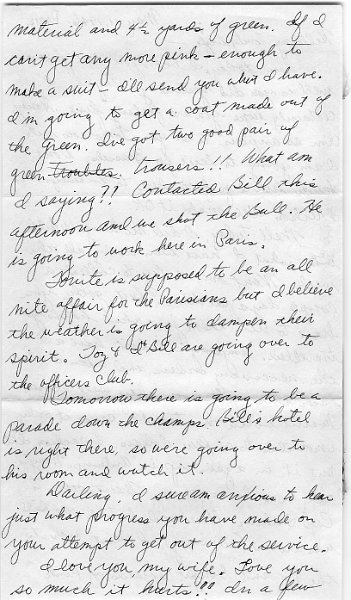 material and 4½ yards of green. If I
can't get any more pink - enough to
make a suit - I'll send you what I have.
I'm going to get a coat made out of
the green. I've got two good pair of
green troubles. trousers!! What am
I saying?! Contacted Bill this
afternoon and we shot the Bull. He
is going to work here in Paris.
Tonite is supposed to be an all
nite affair for the Parisians but I believe
the weather is going to dampen their
spirit. & Bill are going over to
the officers club.
Tomorrow there is going to be a
parade down the champs. Bill's hotel
is right there, so we're going over to
his room and watch it.
Darling, I sure am anxious to hear
just what progress you have made on
your attempt to get out of the service.
I love you, my wife. Love you
so much it hurts!! In a few